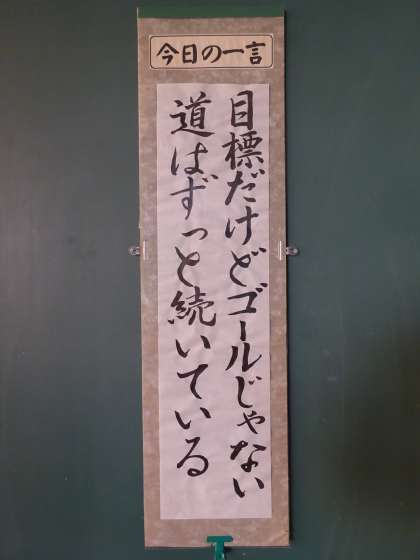 今日の一言
目標だけどゴールじゃない
道はずっと続いている